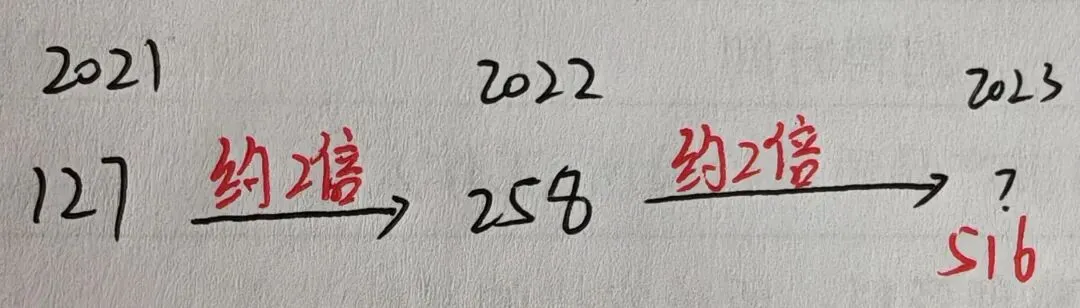 2021 2022 2023
约2倍 约2倍
127 258 ?
516